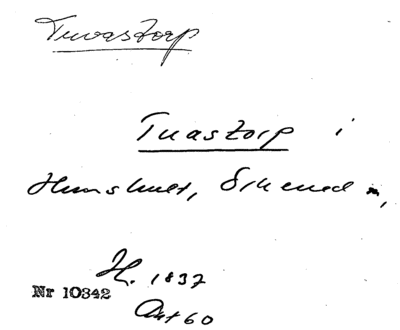 Tuvastorp
Tuastorp i
Hunshult, Örkened
H. 1837
Nr 10342
Art 60